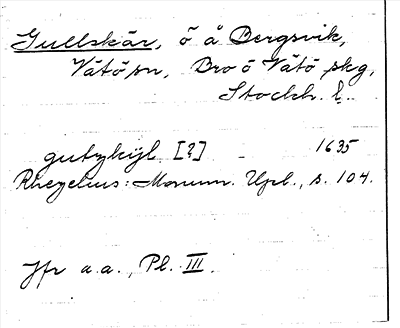 Gullskär, ö å Bergsvik,
Vätö sn, Bro o Vätö skg,
Stockh. l.
gutzkijl [?] 1635
Rhezelius: Monum. Upl., s. 104.
Jfr a.a., Pl. III.